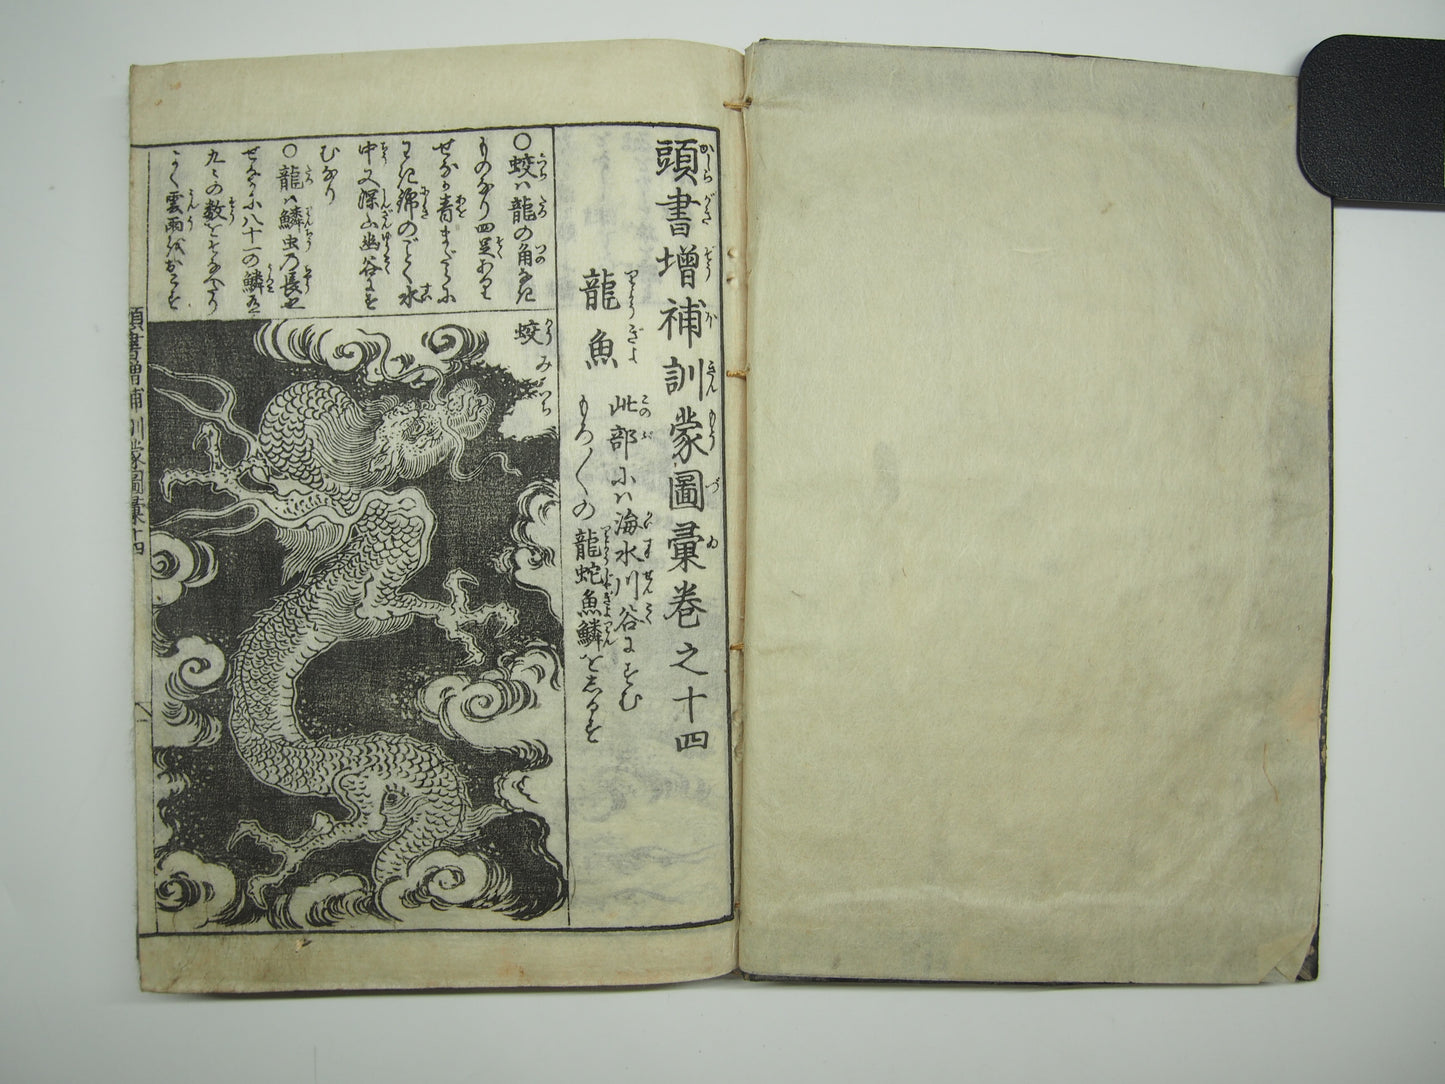 頭書増補訓蒙圖彙巻之十四
龍魚
此部にハ海水川谷にすむ
もろ〳〵の龍蛇魚鱗をしるす
○蛟ハ龍の角なき
ものなり四足ありて
せなか青まだらに
わき錦のごとく水
中又深山幽谷にす
むなり
○龍ハ鱗虫乃長也
せなかに八十一の鱗
九々の数をそなへたり
よく雲雨をおこす
蛟 みづち
頭書増補訓蒙圖彙十四